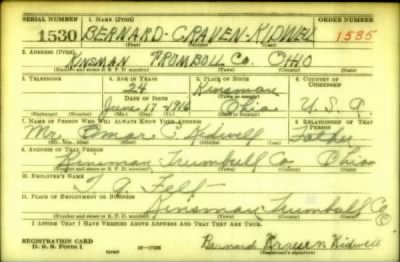 SERIAL NUMBER 1. NAME (Print) ORDER NUMBER
1530 BERNARD-CRAVEN-KIDWELL 1585
(First) (Middle) (Last)
2. ADDRESS (Print)
KINSMAN TROMBOLL CO. OHIO
(Number and street or R. F. D. number) (Town) (County) (State)
3. TELEPHONE 4. AGE IN YEARS 5. PLACE OF BIRTH 6. COUNTRY OF CITIZENSHIP
24 Kinsman
DATE OF BIRTH (Town or county)
June 17 1916 Ohio U.S.A
(Exchange) (No.) (Mo.) (Day) (Yr.) (State or country)
7. NAME OF PERSON WHO WILL ALWAYS KNOW YOUR ADDRESS 8. RELATIONSHIP OF THAT PERSON
Mr. Omar C Kidwell Father
(Mr., Mrs., Miss) (First) (Middle) (Last)
9. ADDRESS OF THAT PERSON
Kinsman Trumbull Co Ohio
(Number and street or R. F. D. number) (Town) (County) (State)
10. EMPLOYER'S NAME
T. A Felt
11. PLACE OF EMPLOYMENT OR BUSINESS
Kinsman Trumbull Co
(Number and street or R. F. D. number) (Town) (County) (State)
I AFFIRM THAT I HAVE VERIFIED ABOVE ANSWERS AND THAT THEY ARE TRUE.
REGISTRATION CARD
D. S. S. Form 1 Bernard Kraven Kidwell
(Registrant's signature)